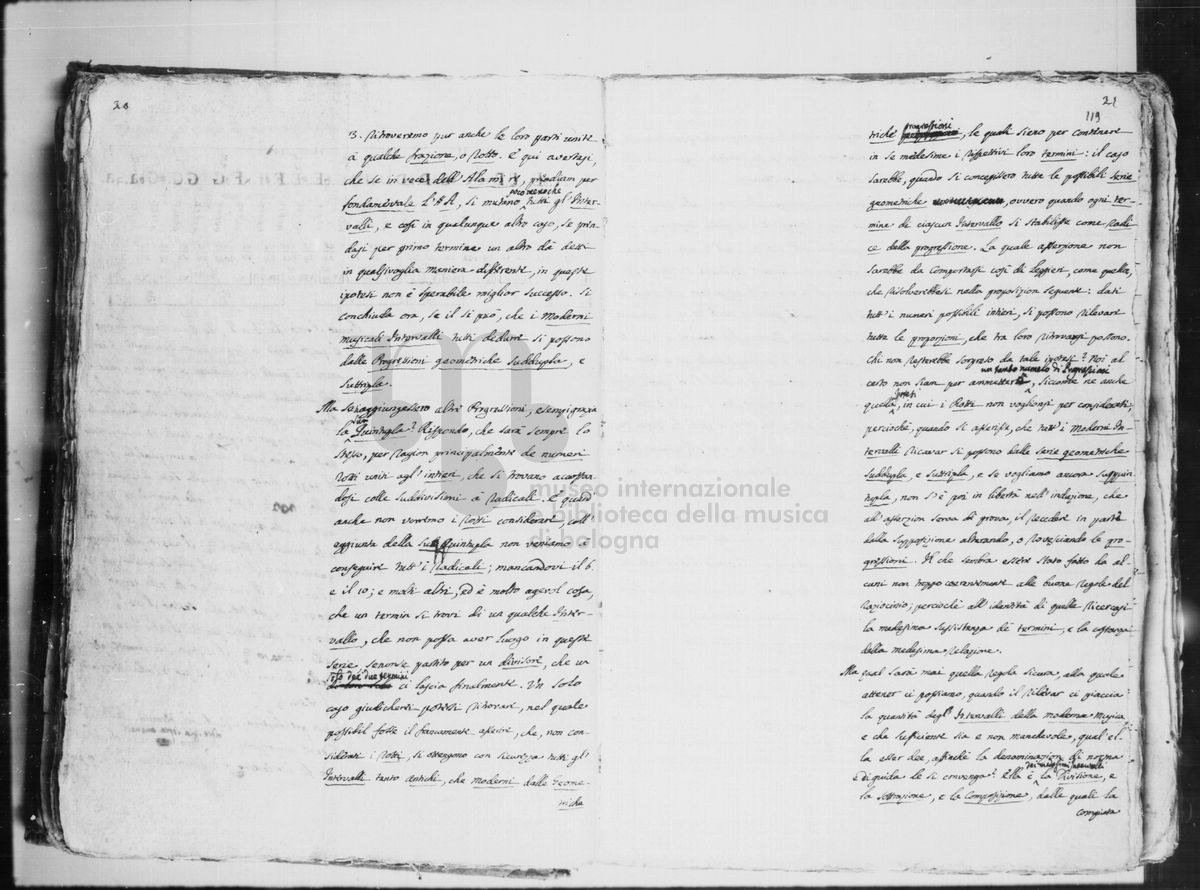 20
13. Ritroveremo pur anche le loro parti unite
à qualche frazione, o Rotto. E qui avertasi,
che se in vece dell' Alamirè, prendiam per
poco meno che
fondamentale L'♯A, si mutano tutti gl' Inter-
valli, e così in qualunque altro caso, se pren-
dasi per primo termine un altro dà detti
in qualsivoglia maniera differente, in queste
ipotesi non è sperabile miglior successo. Si
conchiuda ora, se il si può, che i Moderni
musicali Intervalli tutti dedurre si possono
dalle Progressioni geometriche Suddupla, e
Suttripla.
Ma se s'aggiungessero altre Progressioni, e semprigrazia
la Quintupla? Rispondo, che sarà sempre lo
stesso, per ragion principalmente de numeri
Rotti uniti agl' intieri, che si trovano accostan-
dosi colle suddivisioni à Radicali. E quand'
anche non vorremo i Rotti considerare, coll'
aggiunta della Quintupla non veniamo à
conseguire tutt' i Radicali; mancandovi il 6.
e il 10; e molti altri, ed è molto agevol cosa,
che un termin si trovi di un qualche Inter-
vallo, che non possa aver luogo in queste
serie senonse partito per un divisore, che un
solo dei due termini
ci lascia finalmente. Un solo
caso giudicherei potersi ritrovare, nel quale
possibil fosse il francamente asserire, che, non con-
siderati i Rotti, si ottengono con sicurezza tutti gl'
Intervalli tanto antichi, che moderni dalle Geome
triche
21
119
progressioni
triche, le quali sieno per contenere
in se medesime i rispettivi loro termini: il caso
sarebbe, quando si concepissero tutte le possibili serie
geometriche, ovvero quando ogni ter-
mine di ciascun Intervallo si stabilisse come Radi-
ce della progressione. La quale asserzione non
sarebbe da comportarsi così di leggieri, come quella,
che risolverebbesi nella proposizion seguente: dati
tutt' i numeri possibili intieri, si possono rilevare
tutte le proporzioni, che tra loro ritrovarsi possono.
Chi non resterebbe sorpreso da tale ipotesi? Noi al
un tanto numero di Progressioni
certo non siam per ammettere, siccome ne anche
ipotesi
quella, in cui i Rotti non vogliansi per considerati;
perciochè, quando si asserisse, che tutt' i moderni In-
tervalli ricavar si possono dalle serie geometriche
Suddupla, e Suttripla, e se vogliamo ancora Suqquin-
tupla, non s'è poi in libertà nell' induzione, che
all' asserzion serva di prova, il recedere in parte
dalla supposizione alterando, o rovesciando le pro-
gressioni. Il che sembra essere stato fatto da al-
cuni non troppo coerentemente alle buone regole del
raziocinio; perciochè all' identità di quelle ricercasi
la medesima sussistenza de termini, e la costanza
della medesima relazione.
Ma qual sarà mai quella regola sicura, alla quale
attener ci possiamo, quando il rilevar ci piaccia
la quantità degl' Intervalli della moderna musica
e che sufficiente sia e non manchevole, qual el-
la esser dee, affinchè la denominazion di norma
de' medesimi Intervalli
e di guida le si convenga? Ella è la Divisione, e
la Sottrazione, e la Composizione, dalle quali la
compiuta
museo internazionale
e biblioteca della musica
di bologna